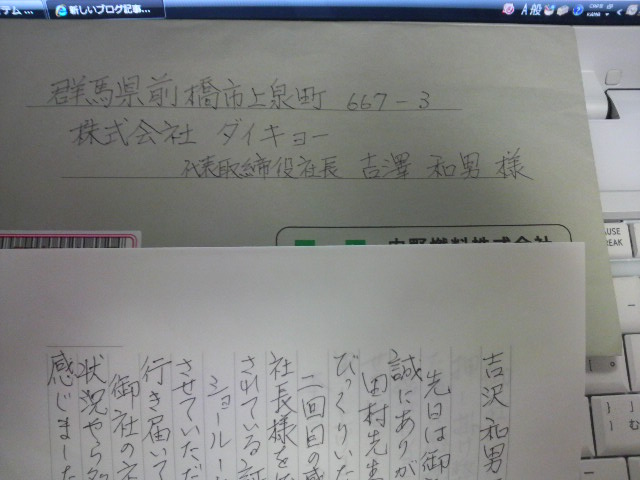 テム...
新しいブログ記事...
A 般
CAPS
KANA
群馬県前橋市上泉町 667-3
株式会社 ダイキョー
代表取締役社長 吉澤 和男 様
中野燃料株式会社
吉沢和男
先日は御
誠にありが
田村先生
びっくりいた
二回目の感
社長様を
されている証
ショールー
させていただ
行き届いて
御社のネ
状況やら多
感じました
BREAK
む